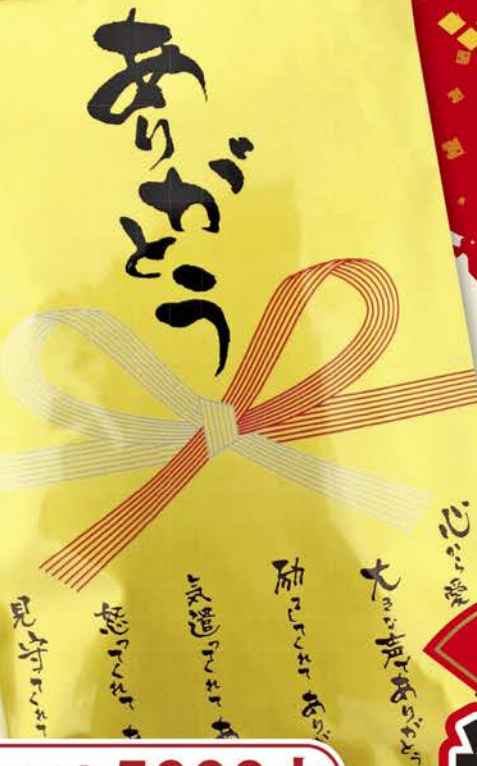 ありがとう
心から愛
大きな声でありがとう
励ましてくれて ありが
気遣ってくれて あ
怒ってくれて
見守ってくれて